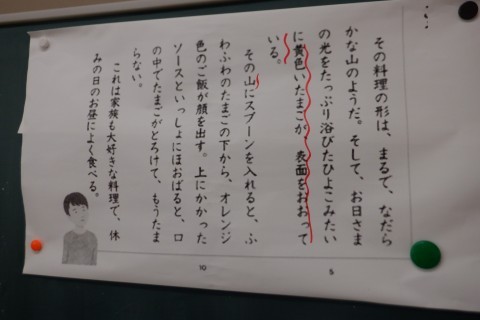 その料理の形は、まるで、なだら
かな山のようだ。そして、お日さま
の光をたっぷり浴びたひよこみたい
に黄色いたまごが、表面をおおって
いる。
5
その山にスプーンを入れると、ふ
わふわのたまごの下から、オレンジ
色のご飯が顔を出す。上にかかった
ソースといっしょにほおばると、口
の中でたまごがとろけて、もうたま
10
らない。
これは家族も大好きな料理で、休
みの日のお昼によく食べる。